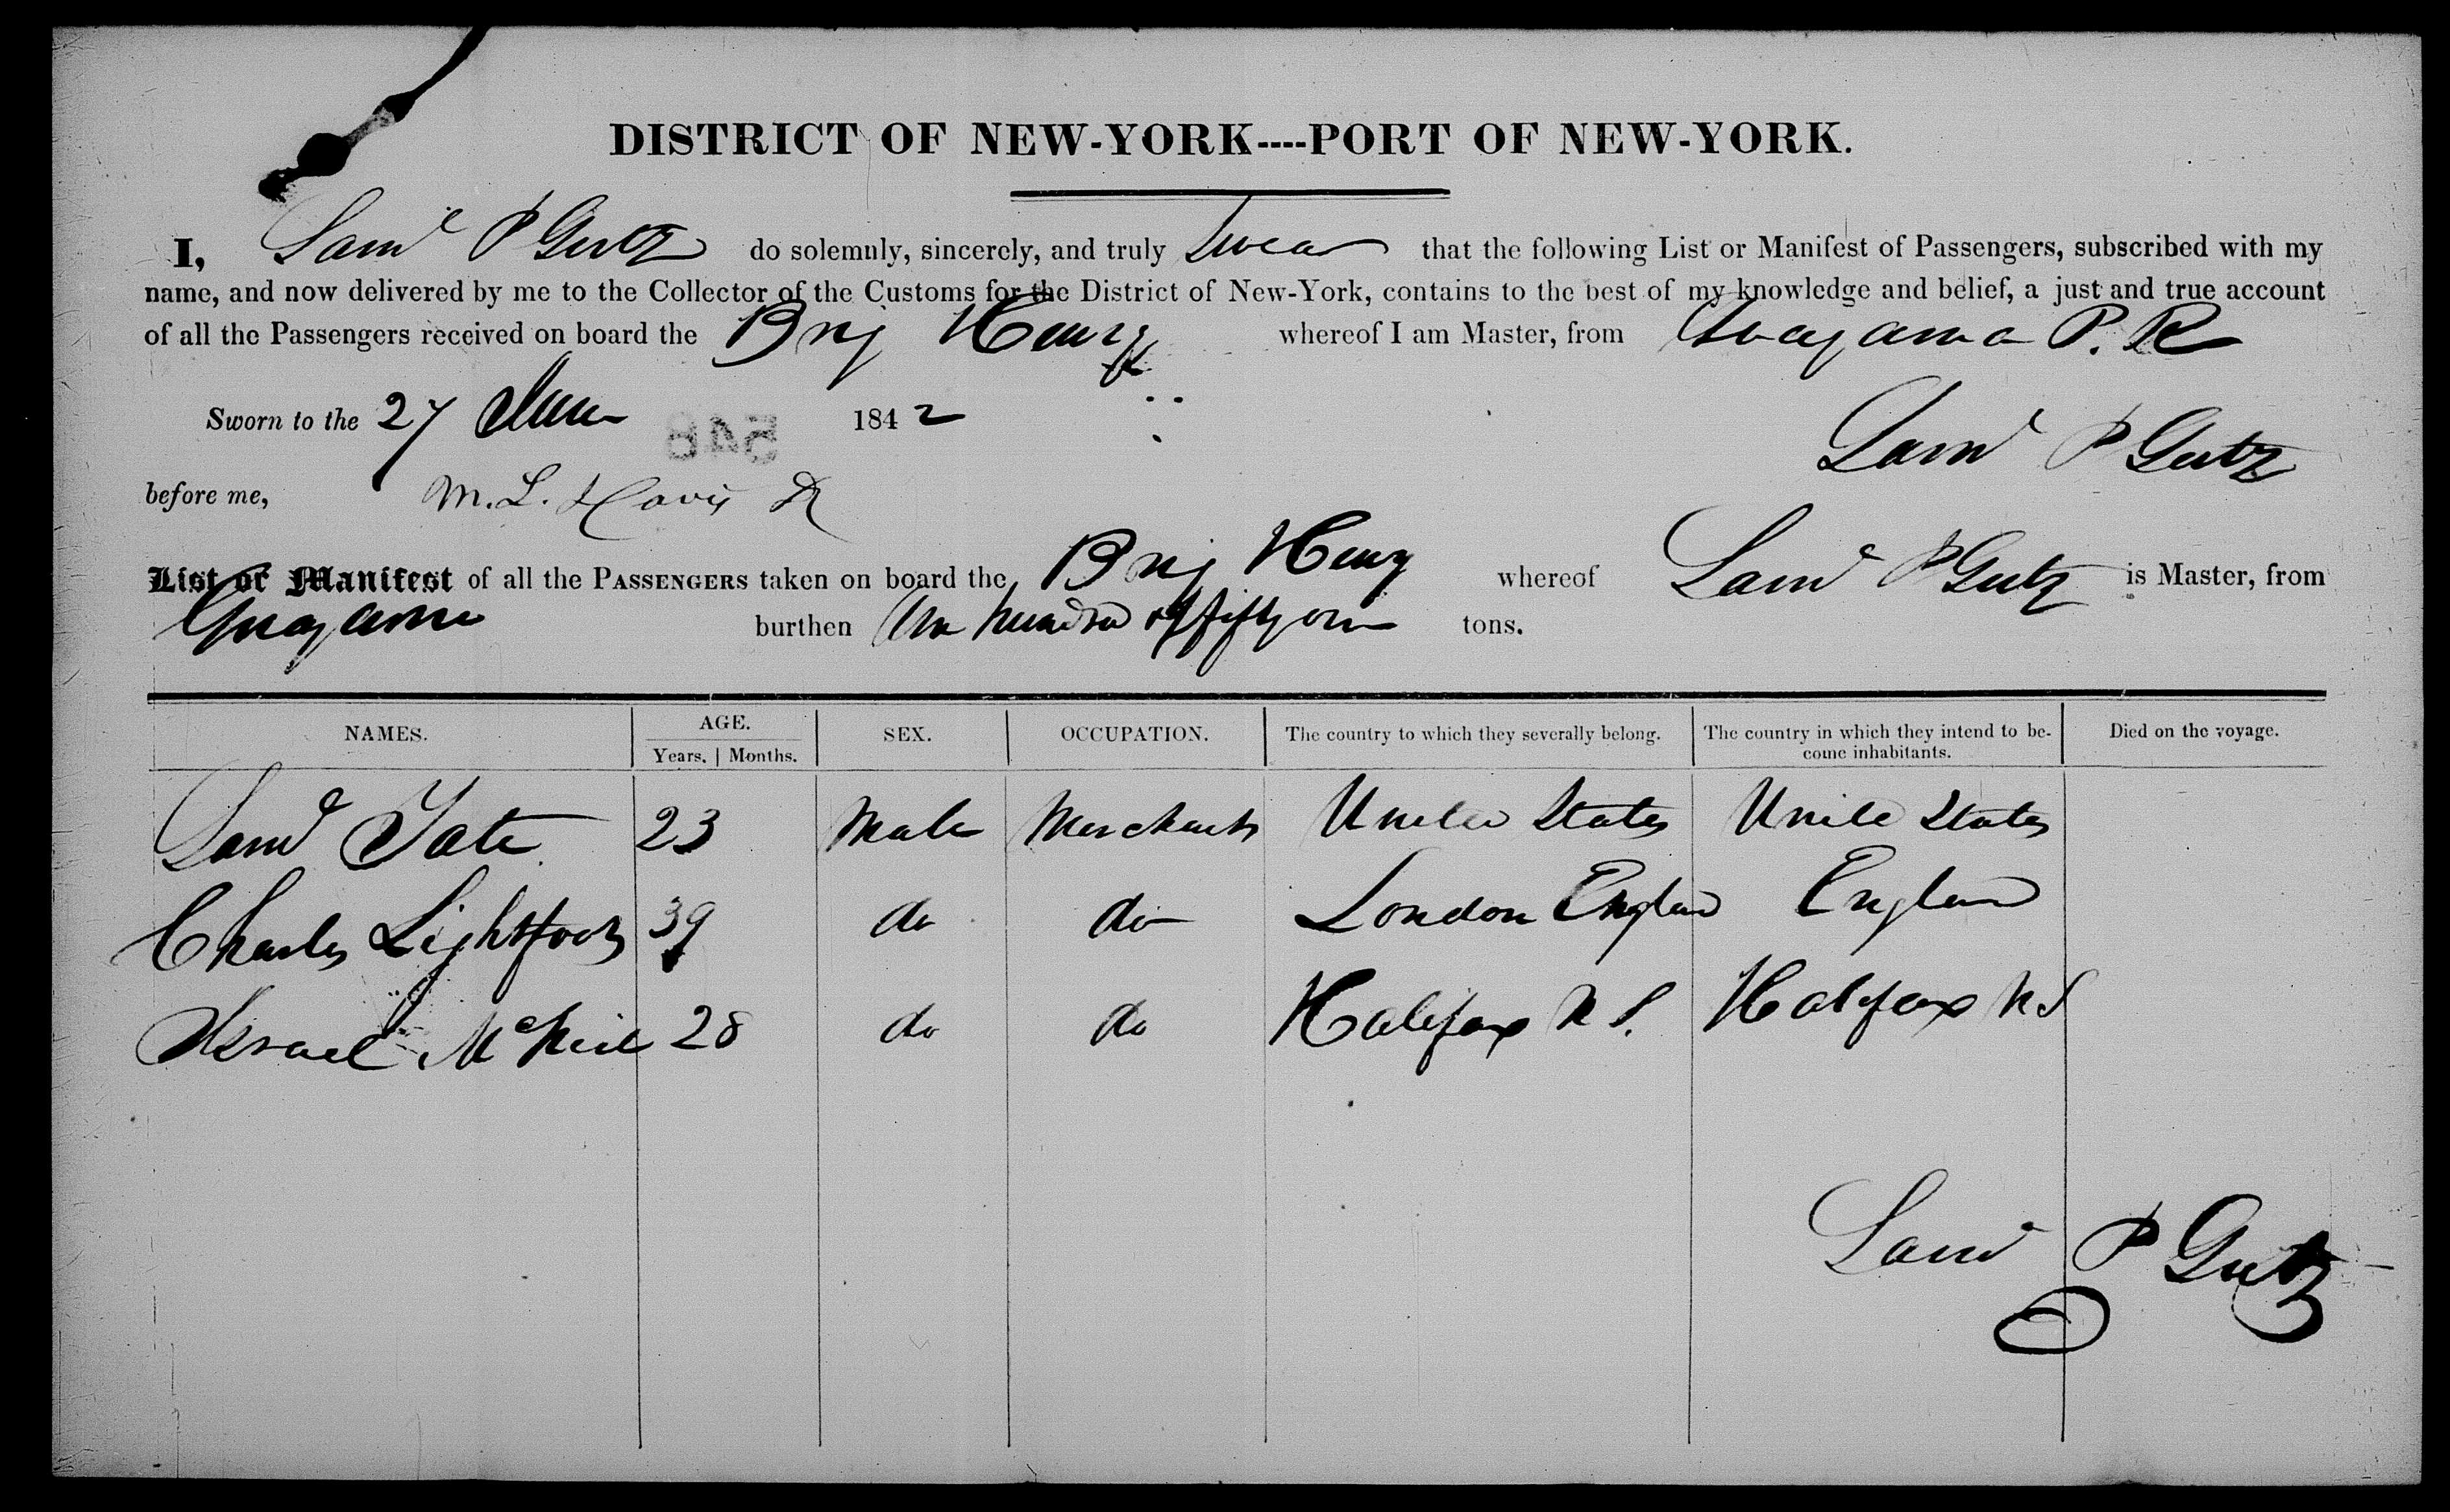 DISTRICT OF NEW-YORK----PORT OF NEW-YORK.
I, Saml P Gutz do solemnly, sincerely, and truly swear that the following List or Manifest of Passengers, subscribed with my
name, and now delivered by me to the Collector of the Customs for the District of New-York, contains to the best of my knowledge and belief, a just and true account
of all the Passengers received on board the Brig Henry whereof I am Master, from Guayama P. R
Sworn to the 27 June 1842
548
Saml P Gutz
before me, M. L. Davis
List or Manifest of all the PASSENGERS taken on board the Brig Henry whereof Saml P Gutz is Master, from
Guayama burthen One hundred & fifty one tons.
NAMES. AGE. SEX. OCCUPATION. The country to which they severally belong. The country in which they intend to be- Died on the voyage.
Years. Months. come inhabitants.
Saml Tate 23 Male Merchants United States Unite States
Charles Lightfoot 39 do do London England England
Israel McNeil 28 do do Halifax N S. Halifax N S
Saml P Gutz